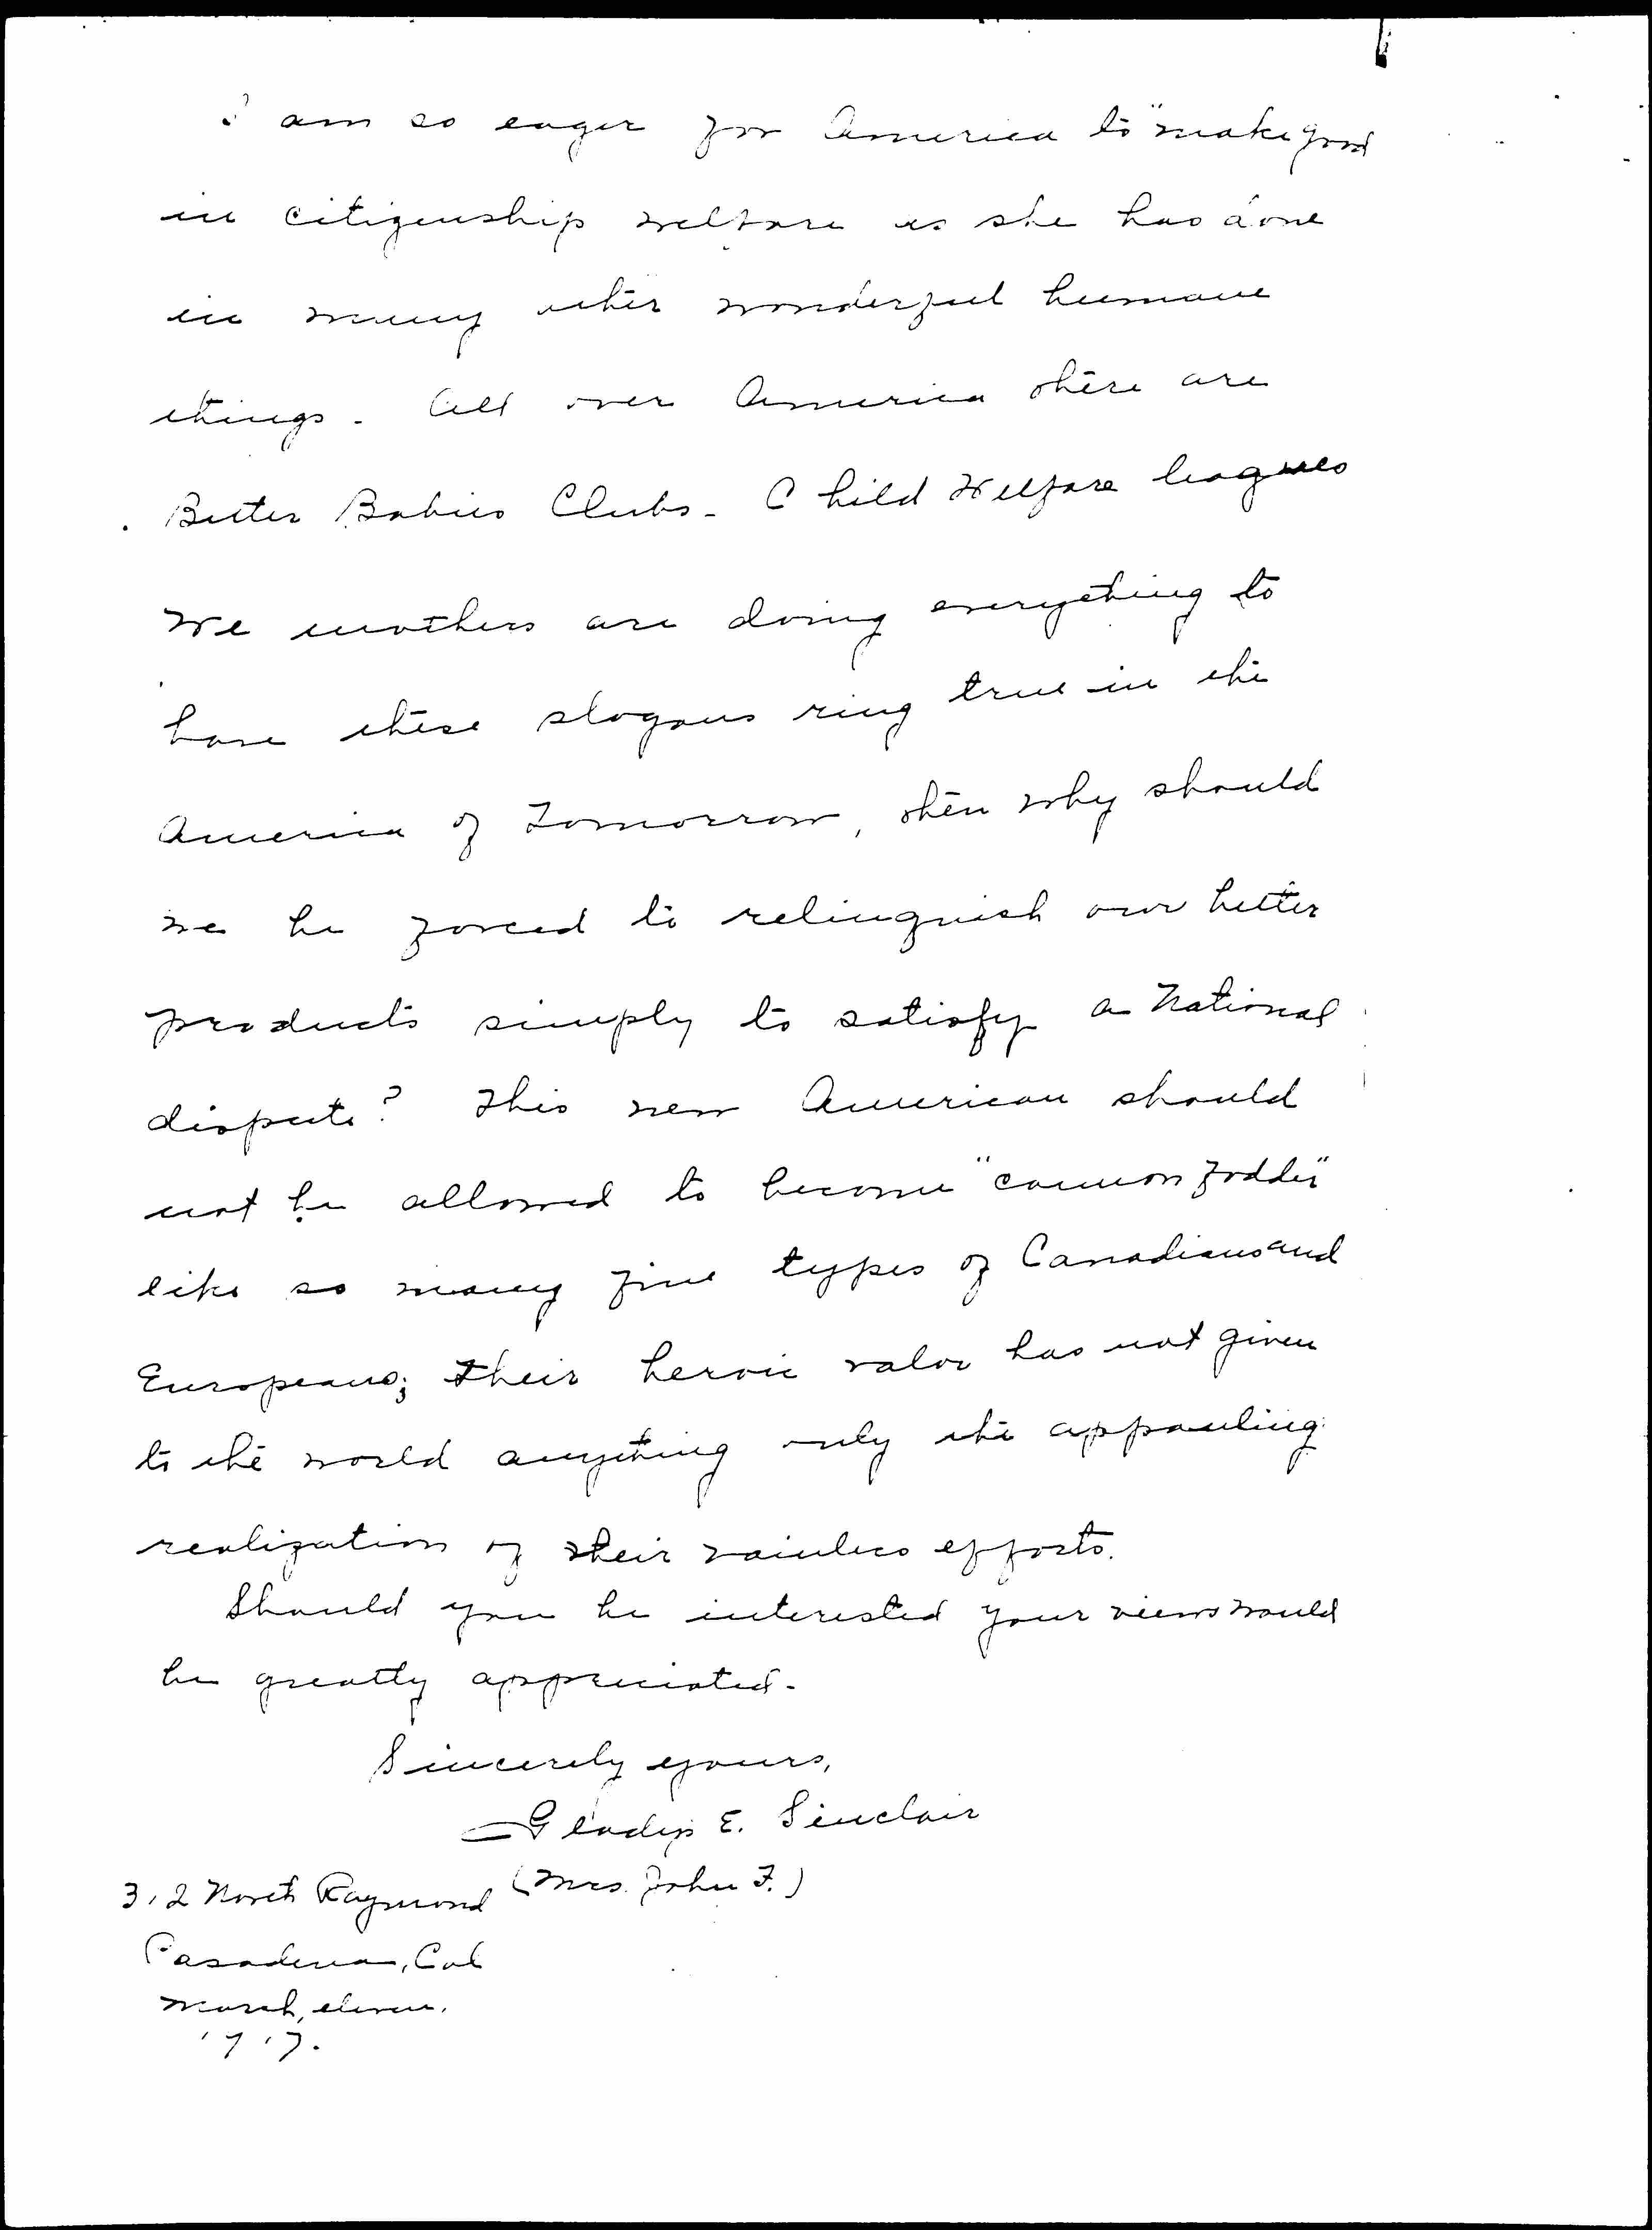 I am so eager for America to "make good
in citizenship welfare as she has done
in many other wonderful humane
things. All over America there are
Better Babies Clubs - Child Welfare leagues
We mothers are doing everything to
have these slogans ring true in the
America of Tomorrow, then why should
we be forced to relinquish our better
products simply to satisfy a National
dispute? This new American should
not be allowed to become "common fodder"
like so many fine types of Canadians and
Europeans; their heroic valor has not given
to the world anything only the appauling
realization of their efforts.
Should you be interested your views would
be greatly appreciated.
Sincerely yours,
Gladys E. Sinclair
(Mrs. John F.)
312 North Raymond
Pasadena, Cal
March, eleven.
1917.